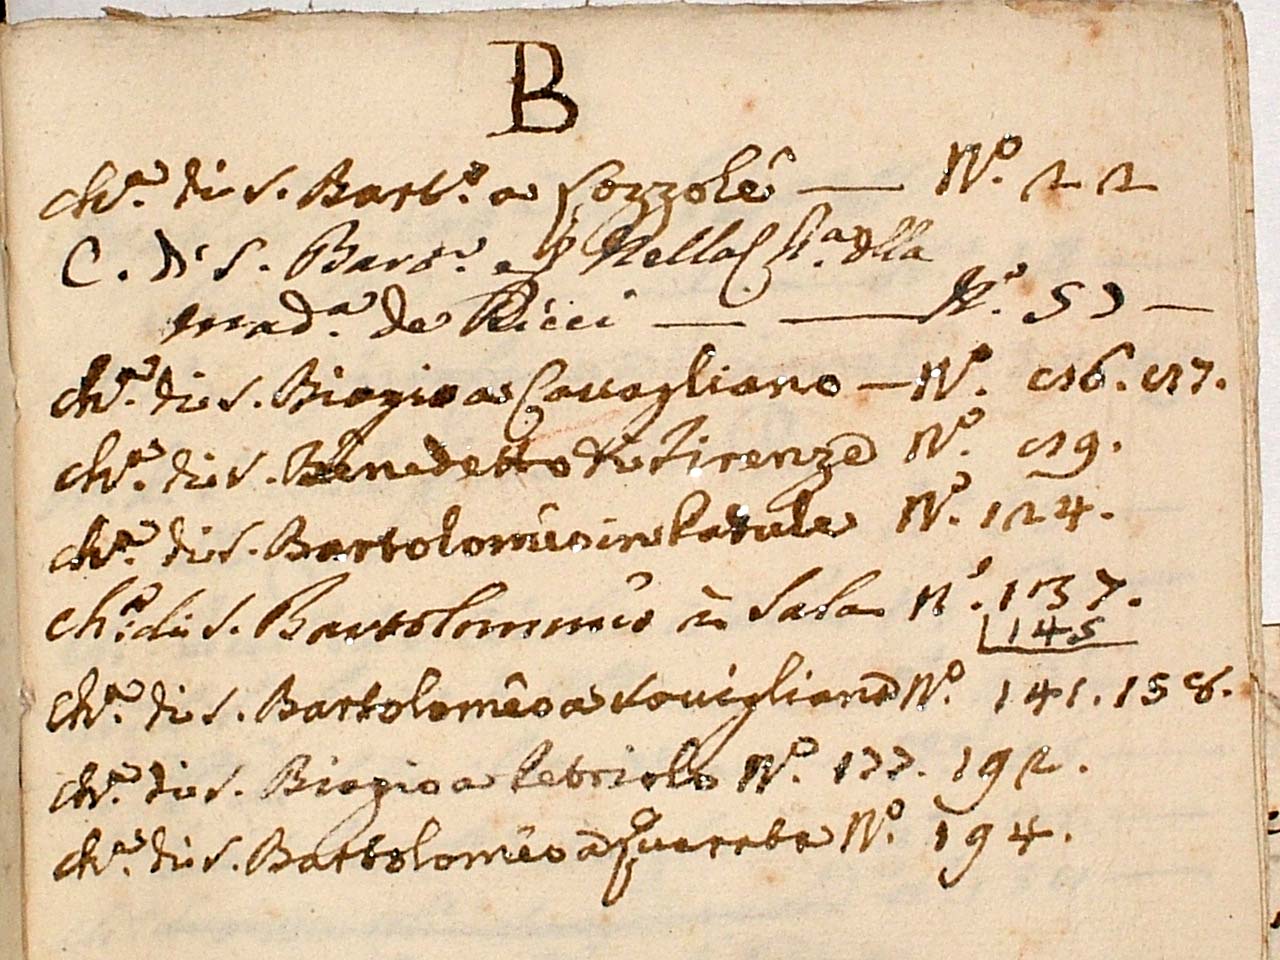 B
Ch.ª di S. Bart.º a Pozzole — N.º 22
C. di S. Bar.º e Nella C.ª della
Mad.ª de Ricci — — N.º 57 —
Ch.ª di S. Biagio a Cavagliano — N.º 56. 57.
Ch.ª di S. Benedetto di Firenze N.º 59.
Ch.ª di S. Bartolomeo in Padule N.º 124.
Ch.ª di S. Bartolommeo in Sala N.º 137.
145
Ch.ª di S. Bartolomeo a Sovigliano N.º 141. 158.
Ch.ª di S. Biagio a Petriolo N.º 177. 192.
Ch.ª di S. Bartolomeo a Quarata N.º 194.